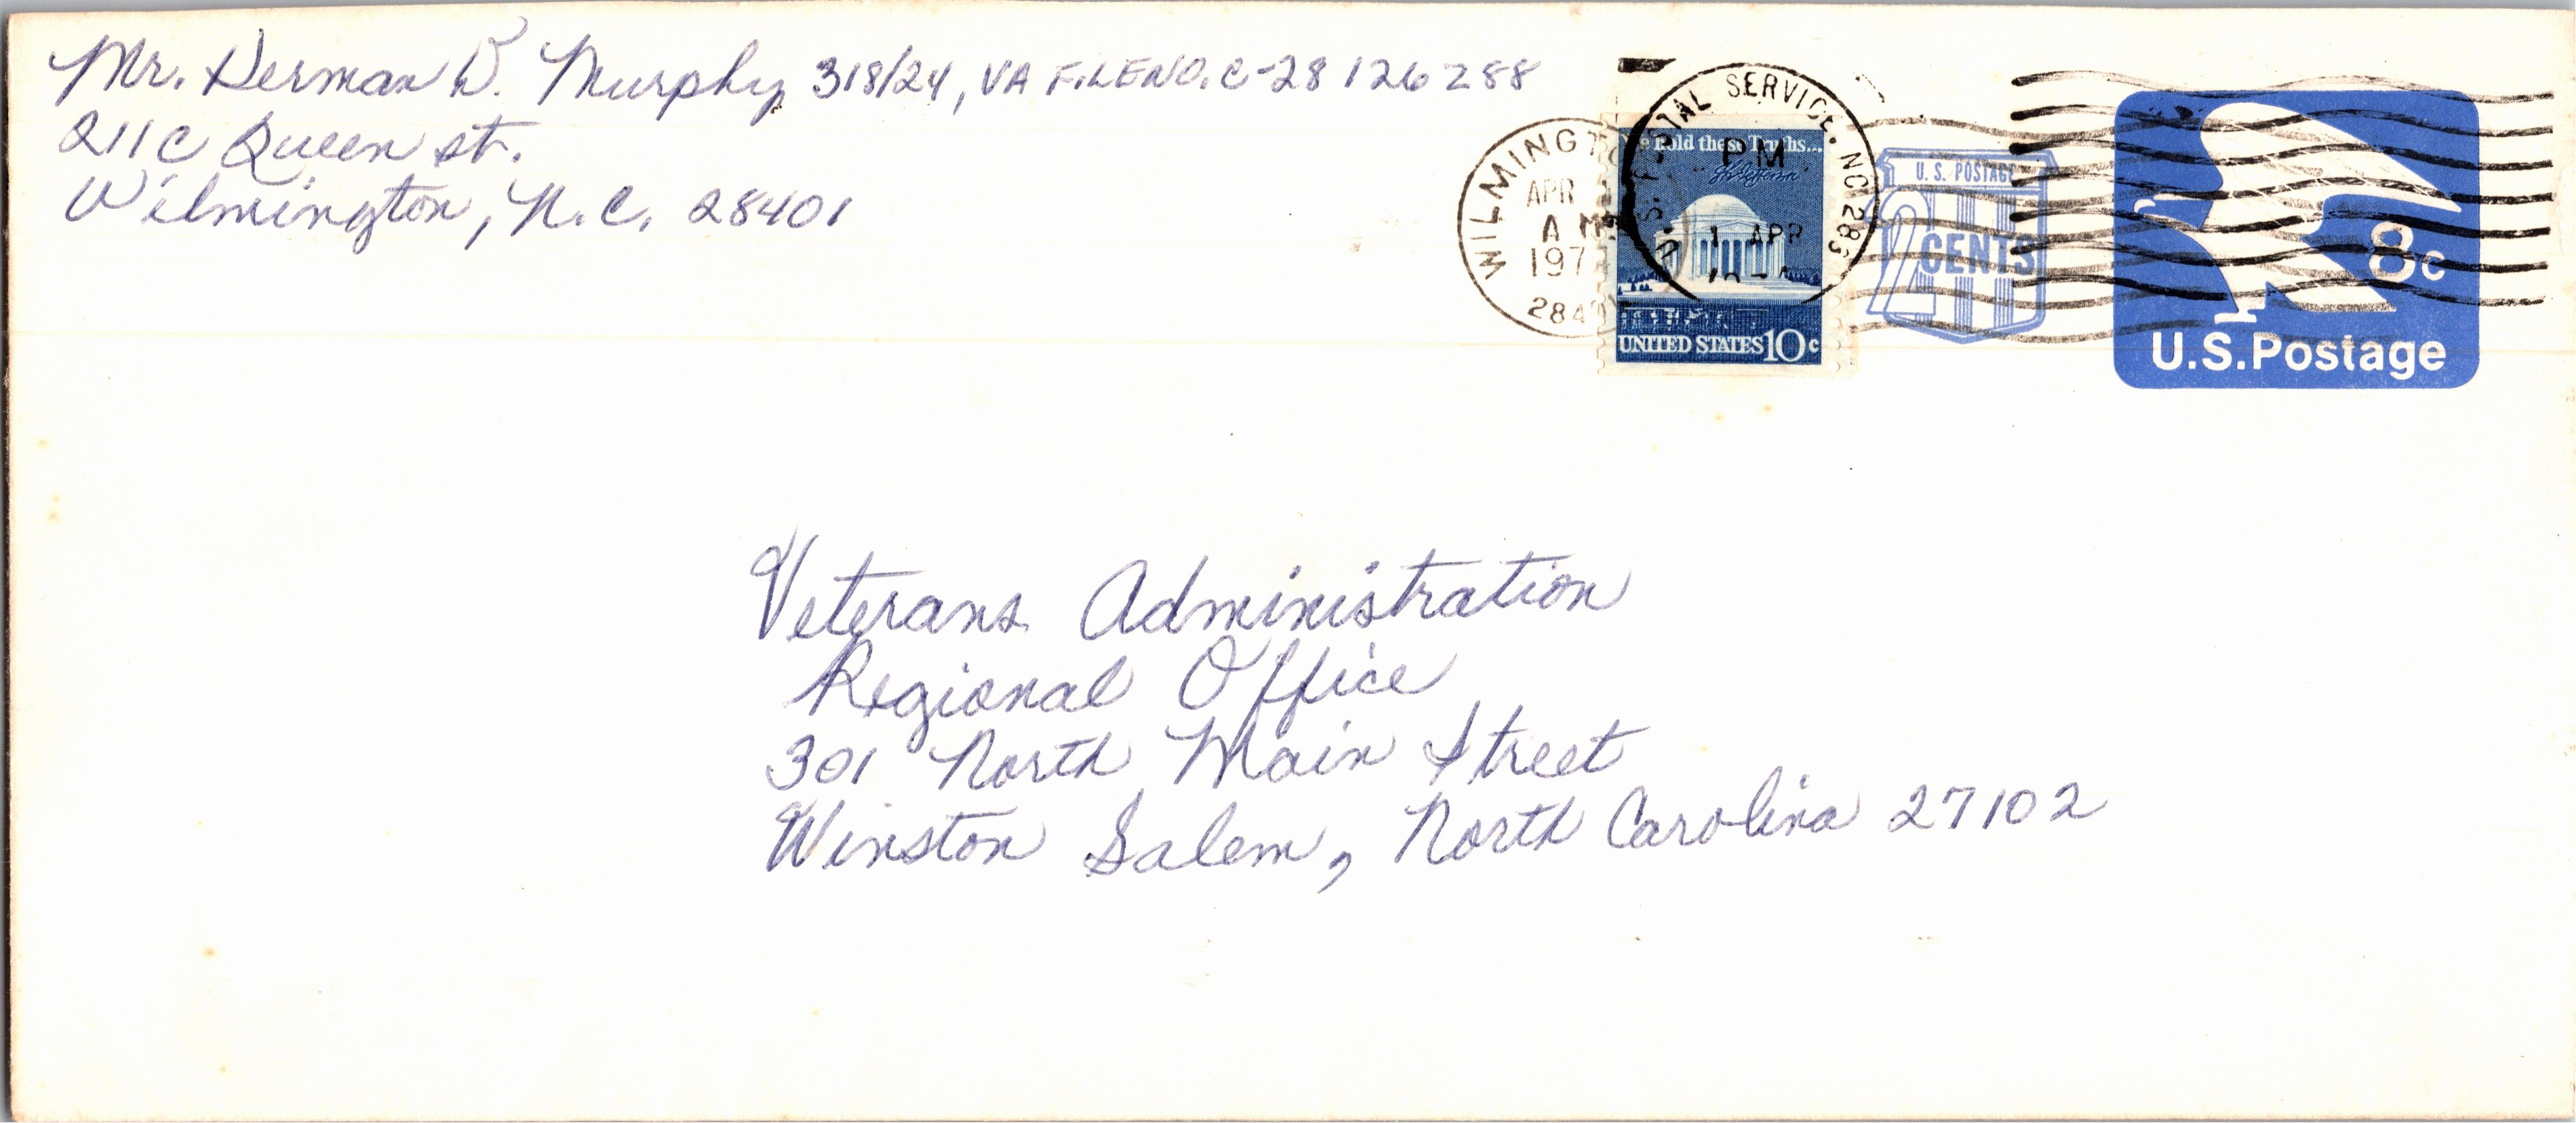 Mr. Herman D. Murphy 318/24, VA FILE NO. C-28 126 288
211 C Queen st.
Wilmington, N.C. 28401
WILMINGT
APR
A M
197
284
U.S. POSTAL SERVICE, NC 283
PM
1 APR
e hold these Truths...
UNITED STATES 10c
U.S. POSTAGE
2 CENTS
8c
U.S. Postage
Veterans Administration
Regional Office
301 North Main Street
Winston Salem, North Carolina 27102